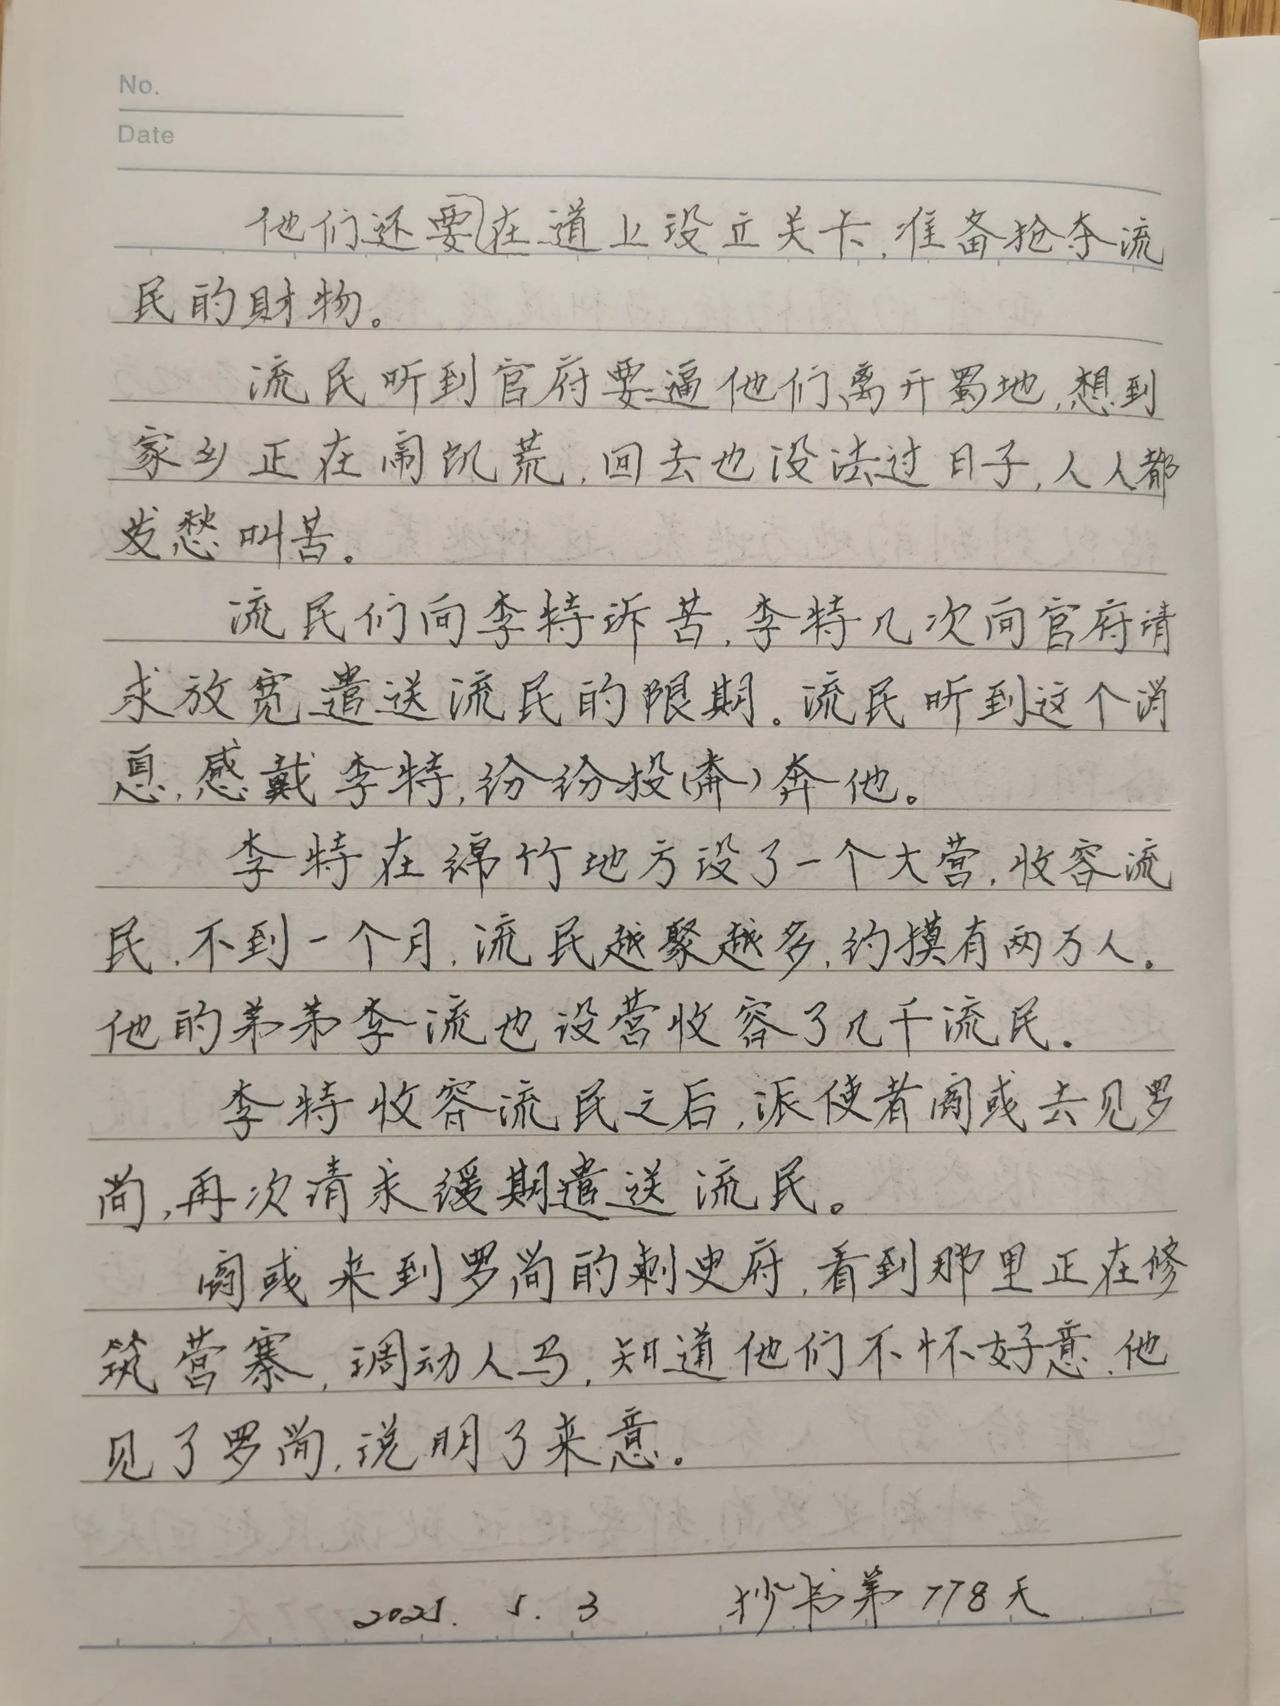 No.
Date
他们还要在道上设立关卡,准备抢夺流
民的财物。
流民听到官府要逼他们离开蜀地,想到
家乡正在闹饥荒,回去也没法过日子,人人都
发愁叫苦。
流民们向李特诉苦,李特几次向官府请
求放宽遣送流民的限期。流民听到这个消
息,感戴李特,纷纷投(奔)奔他。
李特在绵竹地方设了一个大营,收容流
民.不到一个月,流民越聚越多,约摸有两万人。
他的弟弟李流也设营收容了几千流民.
李特收容流民之后,派使者阎彧去见罗
尚,再次请求缓期遣送流民。
阎彧来到罗尚的刺史府,看到那里正在修
筑营寨,调动人马,知道他们不怀好意.他
见了罗尚,说明了来意。
2021. 5. 3 抄书第778天